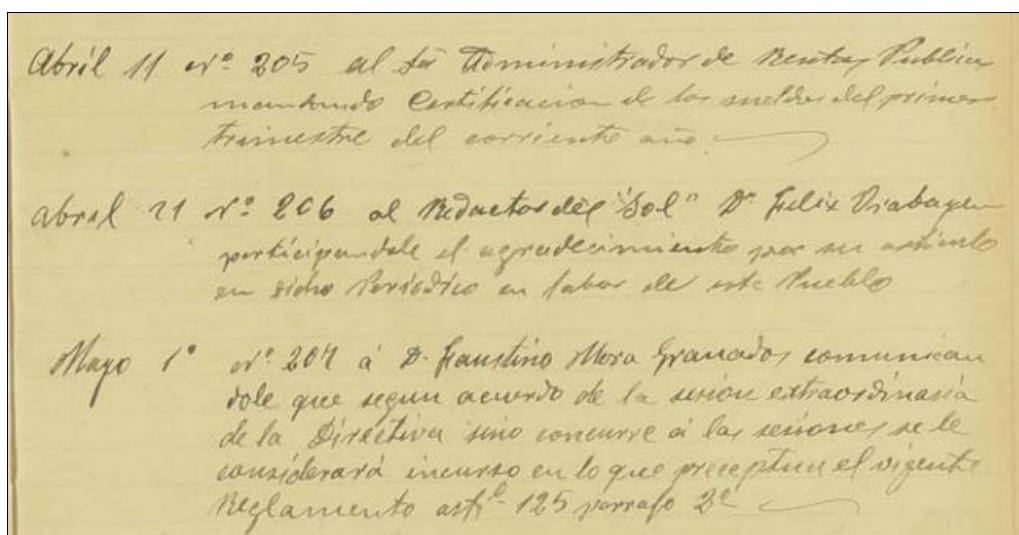 Abril 11 Nº 205 al Sr Administrador de Rentas Publica
mandando Certificacion de los sueldos del primer
trimestre del corriente año.
Abril 21 Nº 206 al Redactor del "Sol" Dn Felix Urabayen
participandole el agradecimiento por su articulo
en dicho Periodico en fabor de este Pueblo
Mayo 1º Nº 207 á D. Faustino Mora Granados comunican
dole que segun acuerdo de la sesion extraordinaria
de la Directiva sino concurre á las sesiones se le
considerará incurso en lo que preceptua el vigente
Reglamento artº 125 parrafo 2º